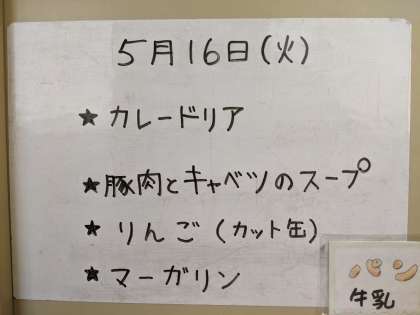 5月16日(火)
★カレードリア
★豚肉とキャベツのスープ
★りんご(カット缶)
★マーガリン
パン
牛乳